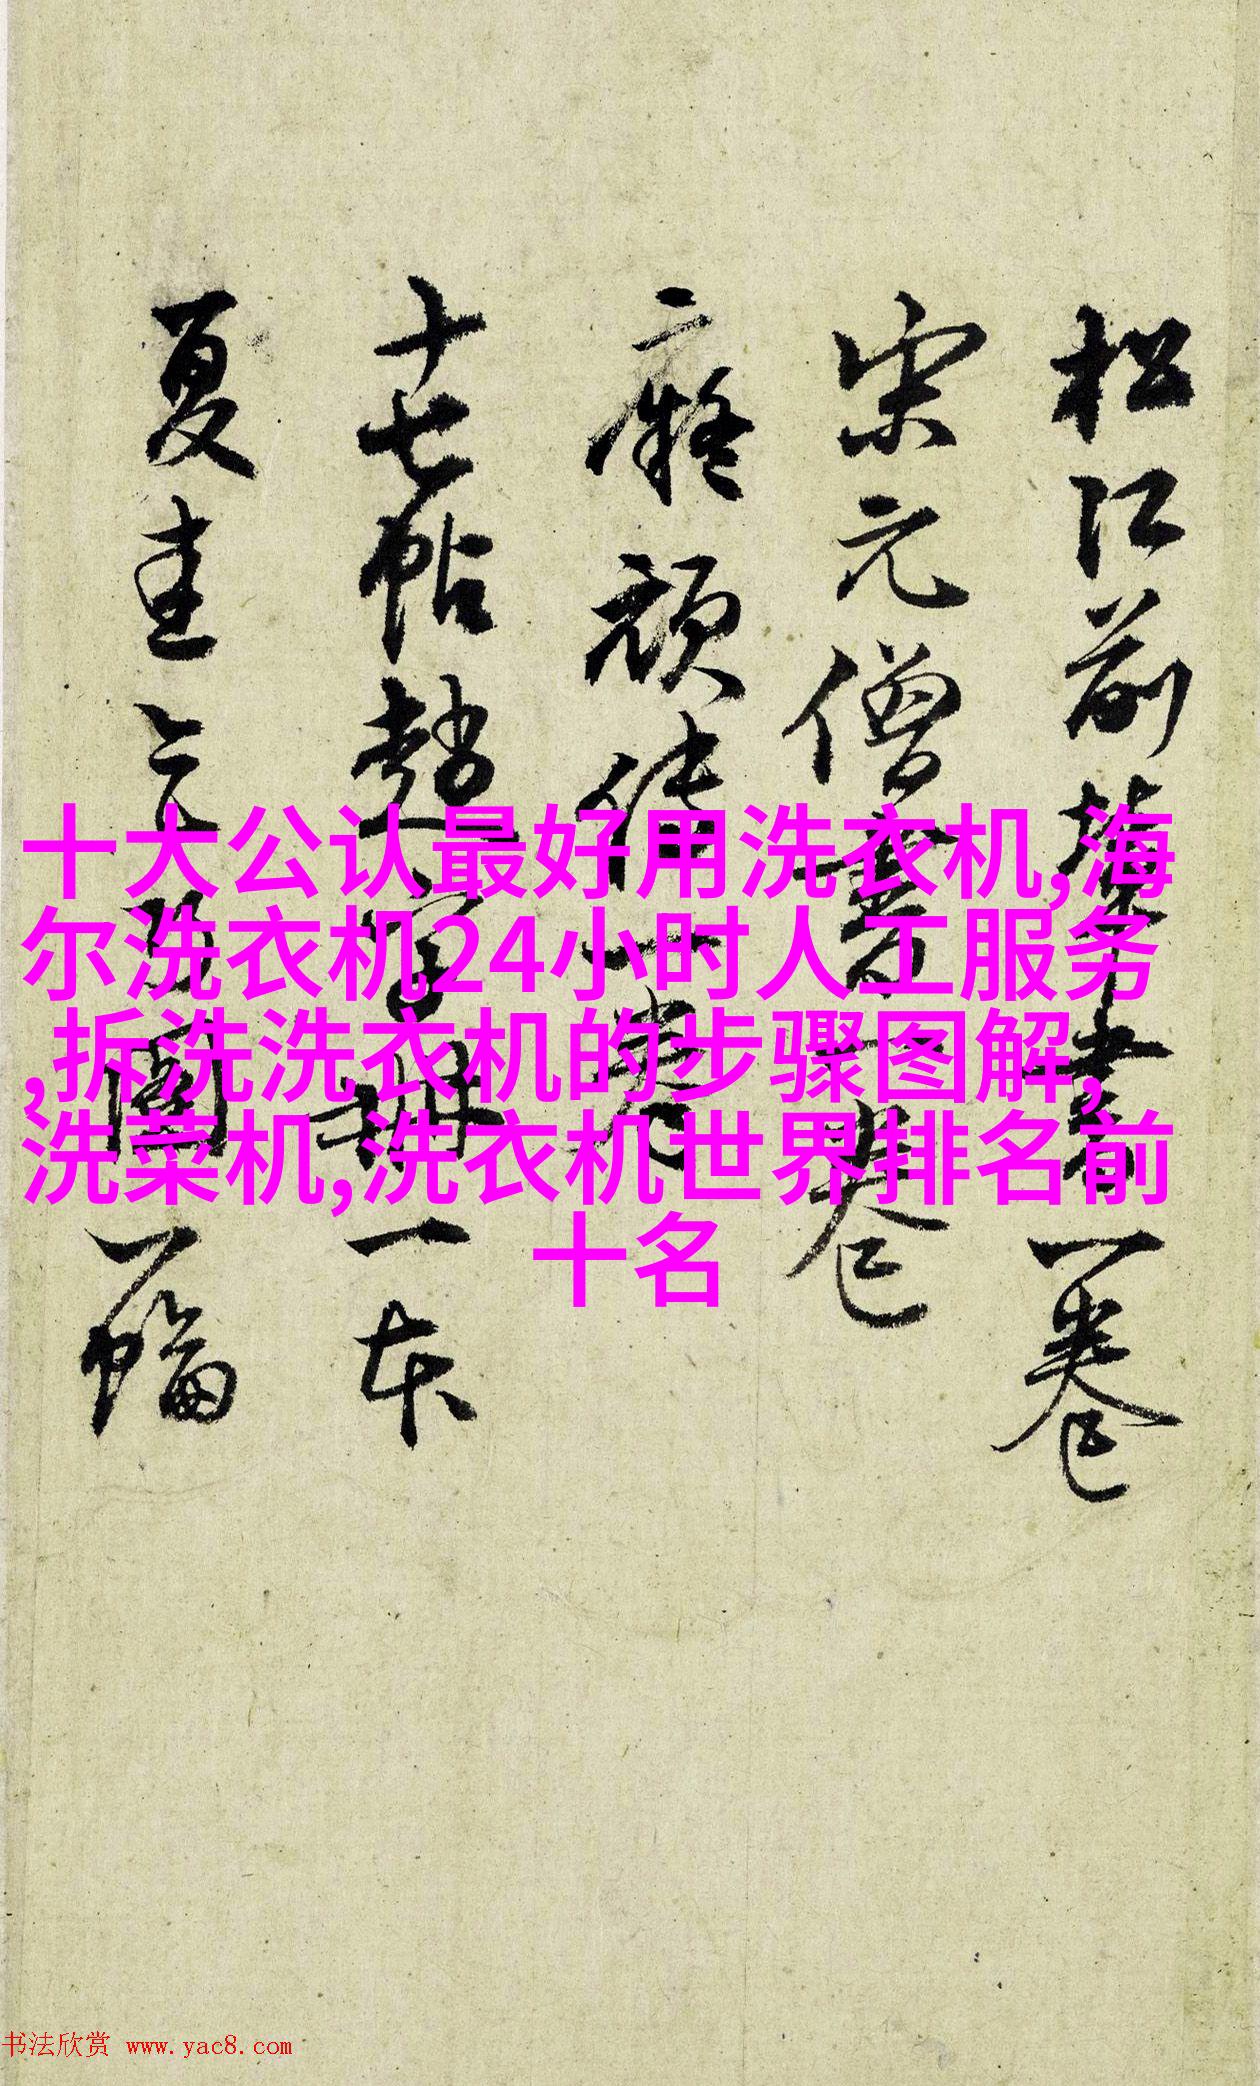 松江前輩書一卷
宋元僧書一卷
二癡頑僊一卷
十七帖趙一本
夏圭一幅
十大公认最好用洗衣机,海
尔洗衣机24小时人工服务
,拆洗洗衣机的步骤图解,
洗菜机,洗衣机世界排名前
十名
书法欣赏 www.yac8.com